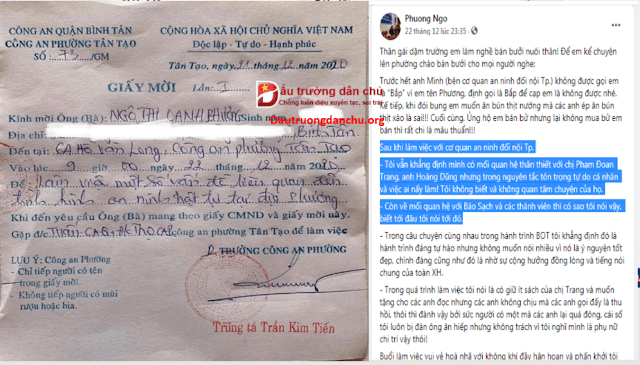 CÔNG AN QUẬN BÌNH TÂN
CÔNG AN PHƯỜNG TÂN TẠO
SỐ : 73 /GM
CỘNG HÒA XÃ HỘI CHỦ NGHĨA VIỆT NAM
Độc lập - Tự do - Hạnh phúc
Tân Tạo, ngày 21 tháng 12 năm 2020
GIẤY MỜI
Lần: I
Đấu trường dân chủ
Chống luận điệu xuyên tạc, sai trái
Dautruongdanchu.org
Kính mời Ông (Bà): NGÔ THỊ OANH PHƯƠNG Sinh năm
Địa chỉ:
Bình Tân
Đến tại: 62 Hồ Văn Long, Công an phường Tân Tạo
Vào lúc: 9 giờ 00 ngày 22 tháng 12 năm 2020
Để: Làm việc một số vấn đề liên quan đến
tình hình an ninh trật tự tại địa phương.
Khi đến yêu cầu Ông (Bà) mang theo CMND và giấy mời này.
Gặp đ/c công an phường Tân Tạo để làm việc
LƯU Ý: Công an Phường
- Chỉ tiếp người có tên
trong giấy mời.
- Không tiếp người có mùi
rượu hoặc bia.
TRƯỞNG CÔNG AN PHƯỜNG
Trung tá Trần Kim Tiến
Phuong Ngo
22 tháng 12 lúc 23:35
Thân gái dặm trường em làm nghề bán bưởi nuôi thân! Để em kể chuyện
lên phường chào bán bưởi cho mọi người nghe:
Trước hết anh Minh (bên cơ quan an ninh đối nội Tp.) không được gọi em
là "Bắp" vì em tên Phương, định gọi là Bắp để cạp em là không được nhé.
Kế tiếp, khi đói bụng em muốn ăn bún thịt nướng mà các anh ép ăn bún
thịt xào là sai!! Cuối cùng. Ủng hộ em bán bưởi nhưng lại không mua bở em
bán thì rất chi là mâu thuẫn!!!
Sau khi làm việc với cơ quan an ninh đối nội Tp.
- Tôi vẫn khẳng định mình có mối quan hệ thân thiết với chị Phạm Đoan
Trang, anh Hoàng Dũng nhưng trong nguyên tắc tôn trọng tự do cá nhân
và việc ai nấy làm! Tôi không biết và không quan tâm chuyện của họ.
- Còn về mối quan hệ với Báo Sạch và các thành viên thì có sao tôi nói vậy,
biết tới đâu tôi nói tới đó.
- Trong câu chuyện cùng nhau trong hành trình BOT tôi khẳng định đó là
hành trình đáng tự hào nhưng không muốn nói nhiều vì nó là ý nguyện tốt
đẹp, chính đáng cũng như đó là nhờ sự cộng hưởng đồng lòng và tiếng nói
chung của toàn XH.
- Trong quá trình làm việc tôi nói là có giữ ít sách của chị Trang và muốn
tặng cho các anh đọc nhưng các anh không chịu mà các anh gọi đấy là thu
hồi, thôi thì đành vậy bởi sức người có một mà các anh lại quá đông, cái số
tôi luôn bị đàn ông ăn hiếp nhưng không trách vì tôi nghĩ mình là phụ nữ
chi trí vậy thôi!
Buổi làm việc vui vẻ hoà nhã với không khí đầy hân hoan và phấn khởi tôi